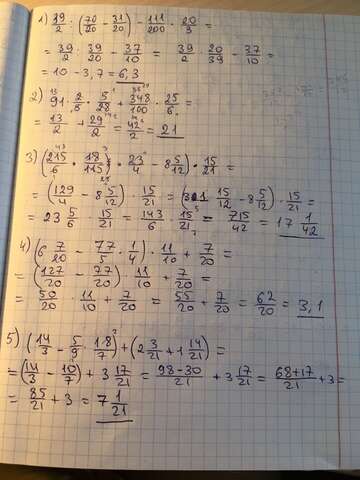 1) 39/2 : (70/20 - 31/20) - 111/200 · 20/3 =
= 39/2 : 39/20 - 37/10 = 39/2 · 20/39 - 37/10 =
= 10 - 3,7 = 6,3
2) 91 · 2/5 · 5/28 + 348/100 · 25/6 =
= 13/2 + 29/2 = 42/2 = 21
3) (215/6 · 18/115) · 23/4 - 8 5/12) · 15/21 =
= (129/4 - 8 5/12) · 15/21 = (31 15/12 - 8 5/12) · 15/21 =
= 23 5/6 · 15/21 = 143/6 · 15/21 = 715/42 = 17 1/42
4) (6 7/20 - 77/5 · 1/4) · 11/10 + 7/20 =
= (127/20 - 77/20) · 11/10 + 7/20 =
= 50/20 · 11/10 + 7/20 = 55/20 + 7/20 = 62/20 = 3,1
5) (14/3 - 5/9 · 18/7) + (2 3/21 + 1 14/21) =
= (14/3 - 10/7) + 3 17/21 = 98-30/21 + 3 17/21 = 68+17/21 + 3 =
= 85/21 + 3 = 7 1/21